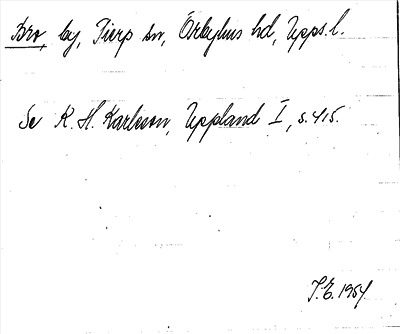 Bro, by, Tierp sn, Örbyhus hd, Upps. l.
Se K. H. Karlsson, Uppland I, s. 415.
T.E. 1954